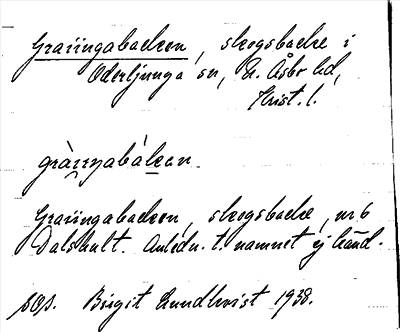 Graiingabacken, skogsbacke i
Oderljunga sn, N. Åsbo hd,
Krist. l.
Graiingabacken, skogsbacke, nr 6
Dalshult. Anledn. t. namnet ej känd.
Birgit Lundkvist 1938.